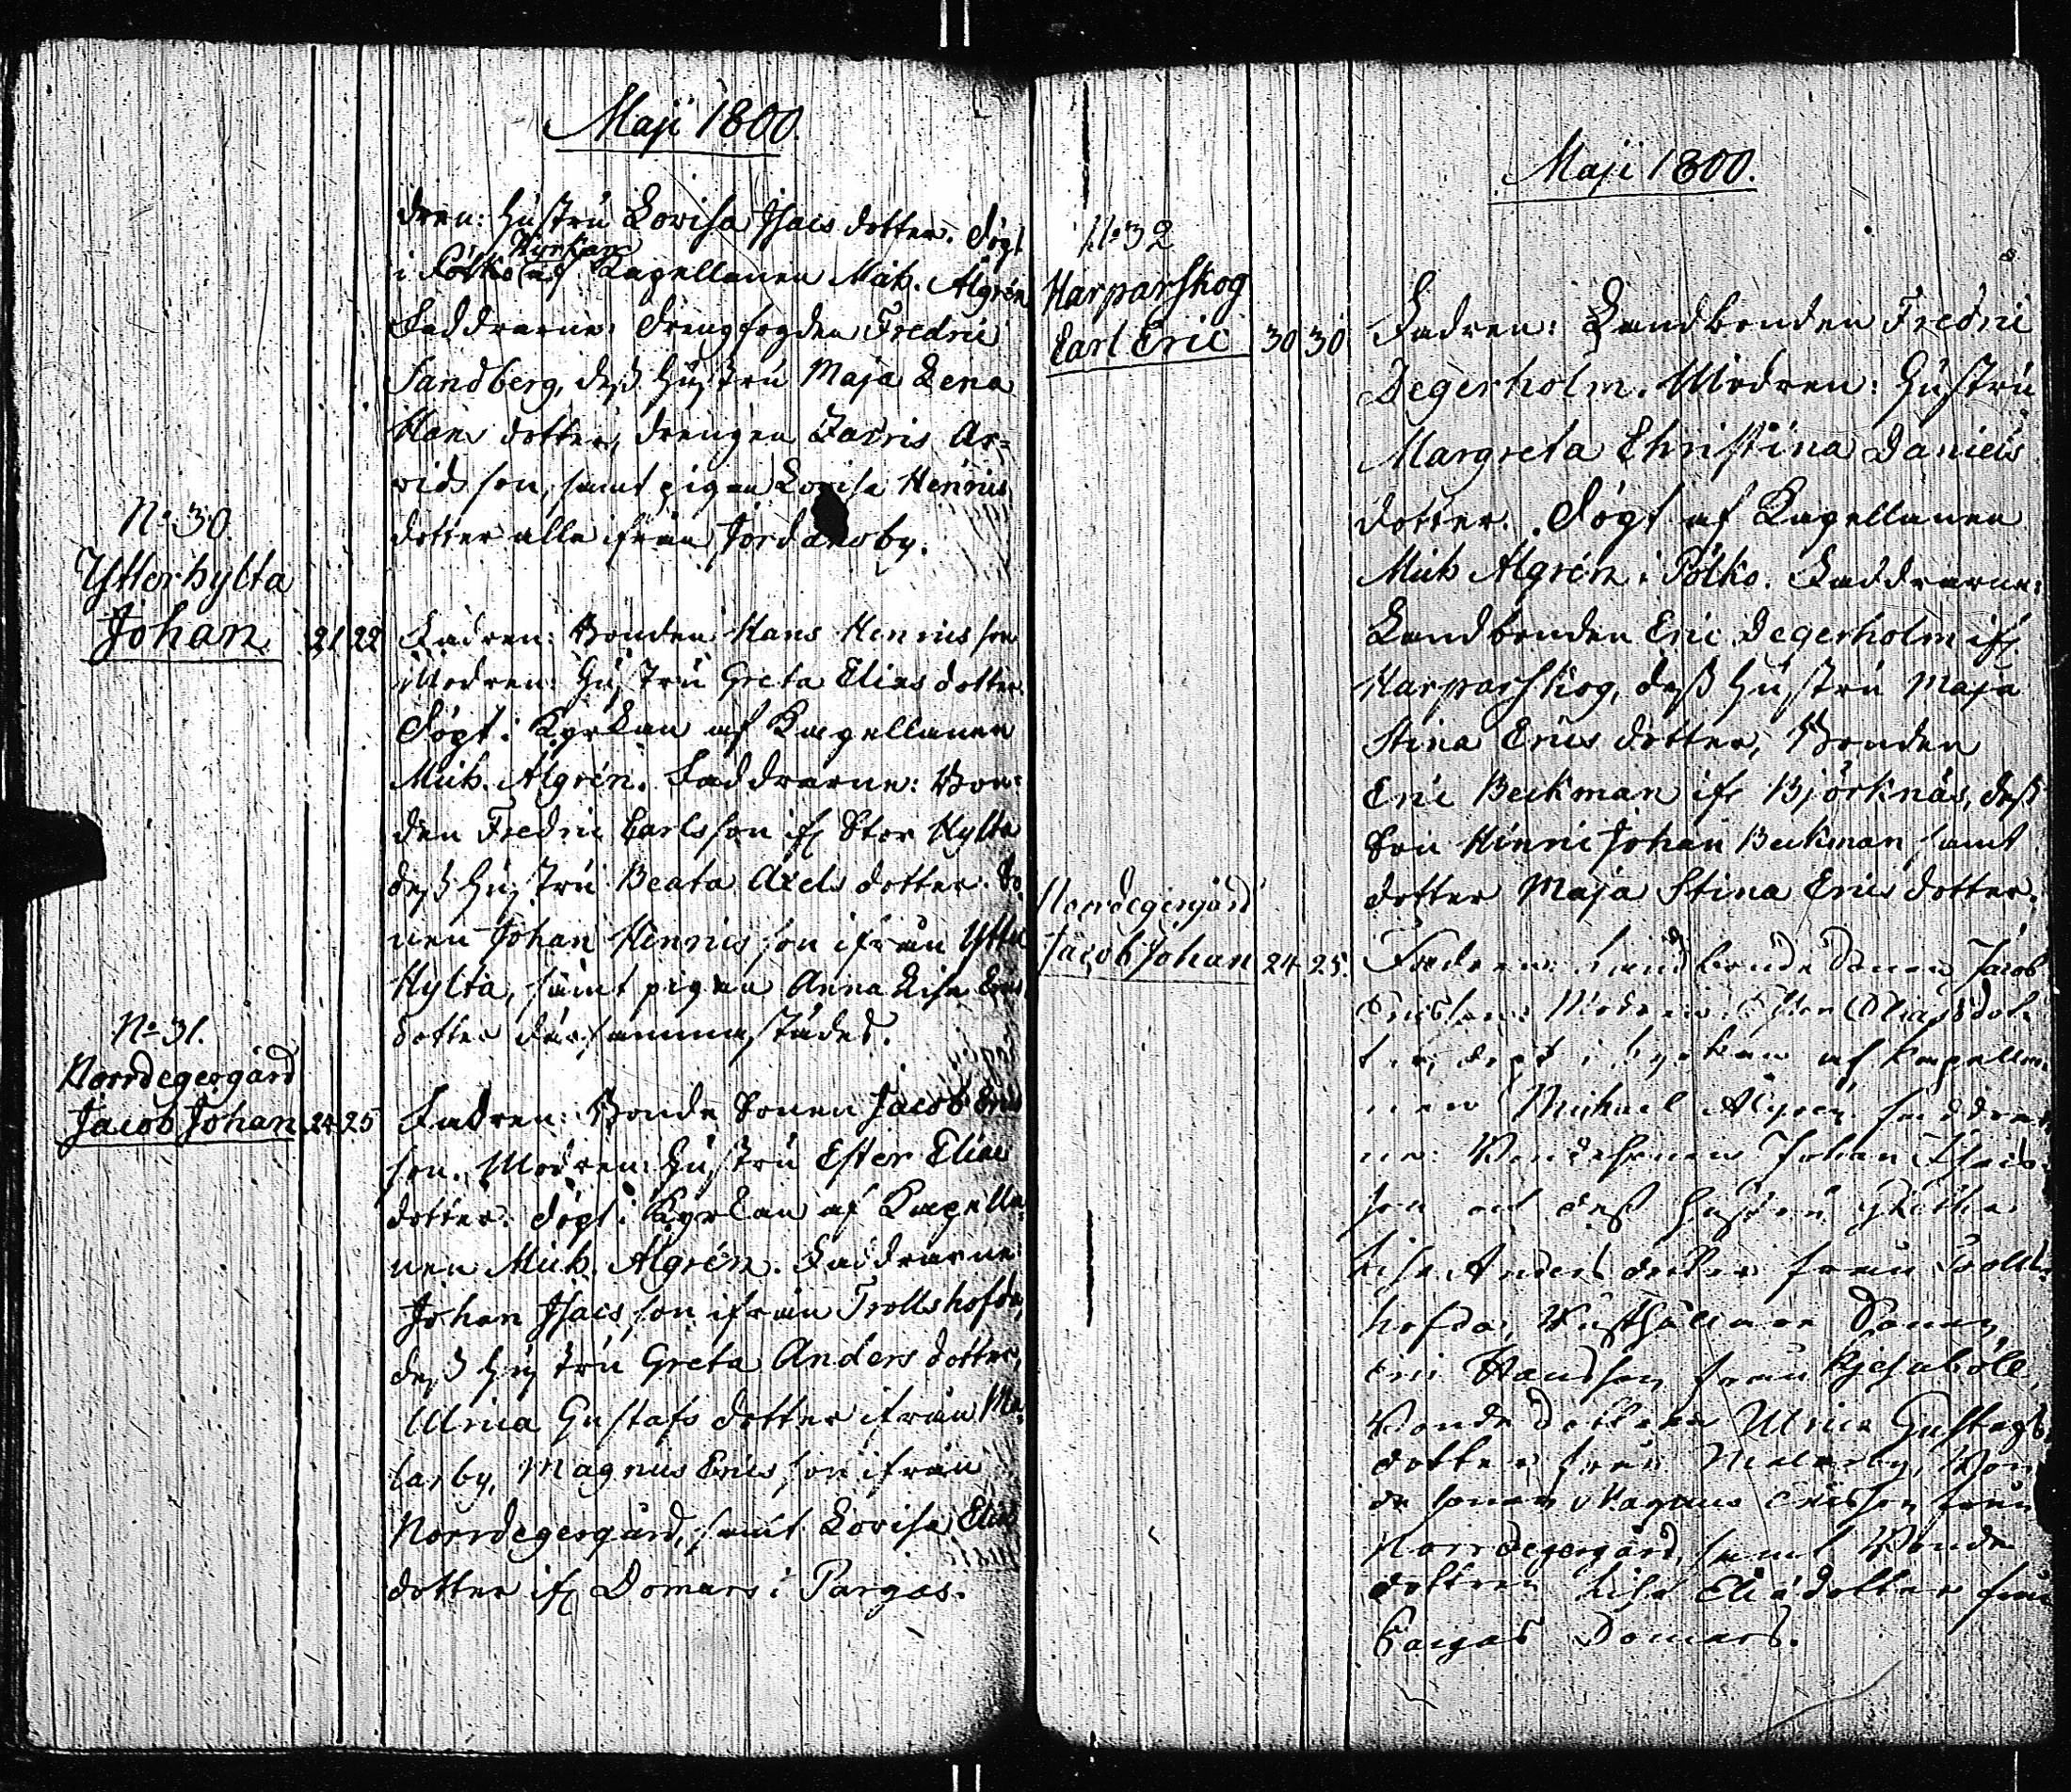 Maji 1800.
dren: Hustru Lovisa Isacs dotter. Döpt
Kyrkan
i Pölkö af Kapellanen Mich. Algrén
Faddrarne: Drengfogden Fredric
Sandberg, dess Hustru Maja Lena
Hans dotter, drengen Zacris Ar=
vids son, samt pigan Lovisa Henrics
dotter alla ifrån Jordansby.
No 30.
Ytterhylta
Johan 21 22
Fadren: Bonden Hans Henrics son
Modren: Hustru Greta Elias dotter.
Döpt i Kyrkan af Kapellanen
Mich. Algrén. Faddrarne: Bon=
den Fredric Carlsson if Stor Hylta
dess Hustru Beata Axels dotter. So
nen Johan Henrics son ifrån Ytter
Hylta, samt pigan Anna Lisa Erics
dotter dersammastädes.
No 31.
Norrdegergård
Jacob Johan 24 25
Fadren: Bonde Sonen Jacob Erics
son. Modren: Hustru Ester Elias
dotter. Döpt i Kyrkan af Kapella
nen Mich. Algrén. Faddrarne:
Johan Isacs son ifrån Trollshofda,
dess Hustru Greta Anders dotter,
Ulrica Gustafs dotter ifrån Ma
larby, Magnus Erics son ifrån
Norrdegergård, samt Lovisa Elias
dotter if Domars i Pargas.
Maji 1800.
No 32
Harparskog
Carl Eric 30 30
Fadren: Landbonden Fredric
Degerholm. Modren: Hustru
Margreta Christina Daniels
dotter. Döpt af Kapellanen
Mich Algrén i Pölkö. Faddrarne:
Landbonden Eric Degerholm if
Harparskog, dess Hustru Maja
Stina Erics dotter, Bonden
Eric Beckman ifr Björknäs, dess
Son Henric Johan Beckman samt
dotter Maja Stina Erics dotter.
Norrdegergård
Jacob Johan 24 25.
Fadren: Landbonde Sonen Jacob
Ericsson. Modren: Ester Eliasdot
ter, döpt i kyrkan af kapella
nen Michael Algren. faddrar
ne: Bondesonen Johan Isacs
son och dess hustru
Lisa Andersdotter från Trolls
hofda, Rusthållare Sonen
Eric Hansson från Kjesaböle
Bonde dottren Ulrica Gustafs
dotter från Malarby, Bon
de sonen Magnus Ericsson från
Norrdegergård, samt Bonde
dottren Lisa Eliædotter från
Pargas Domars.